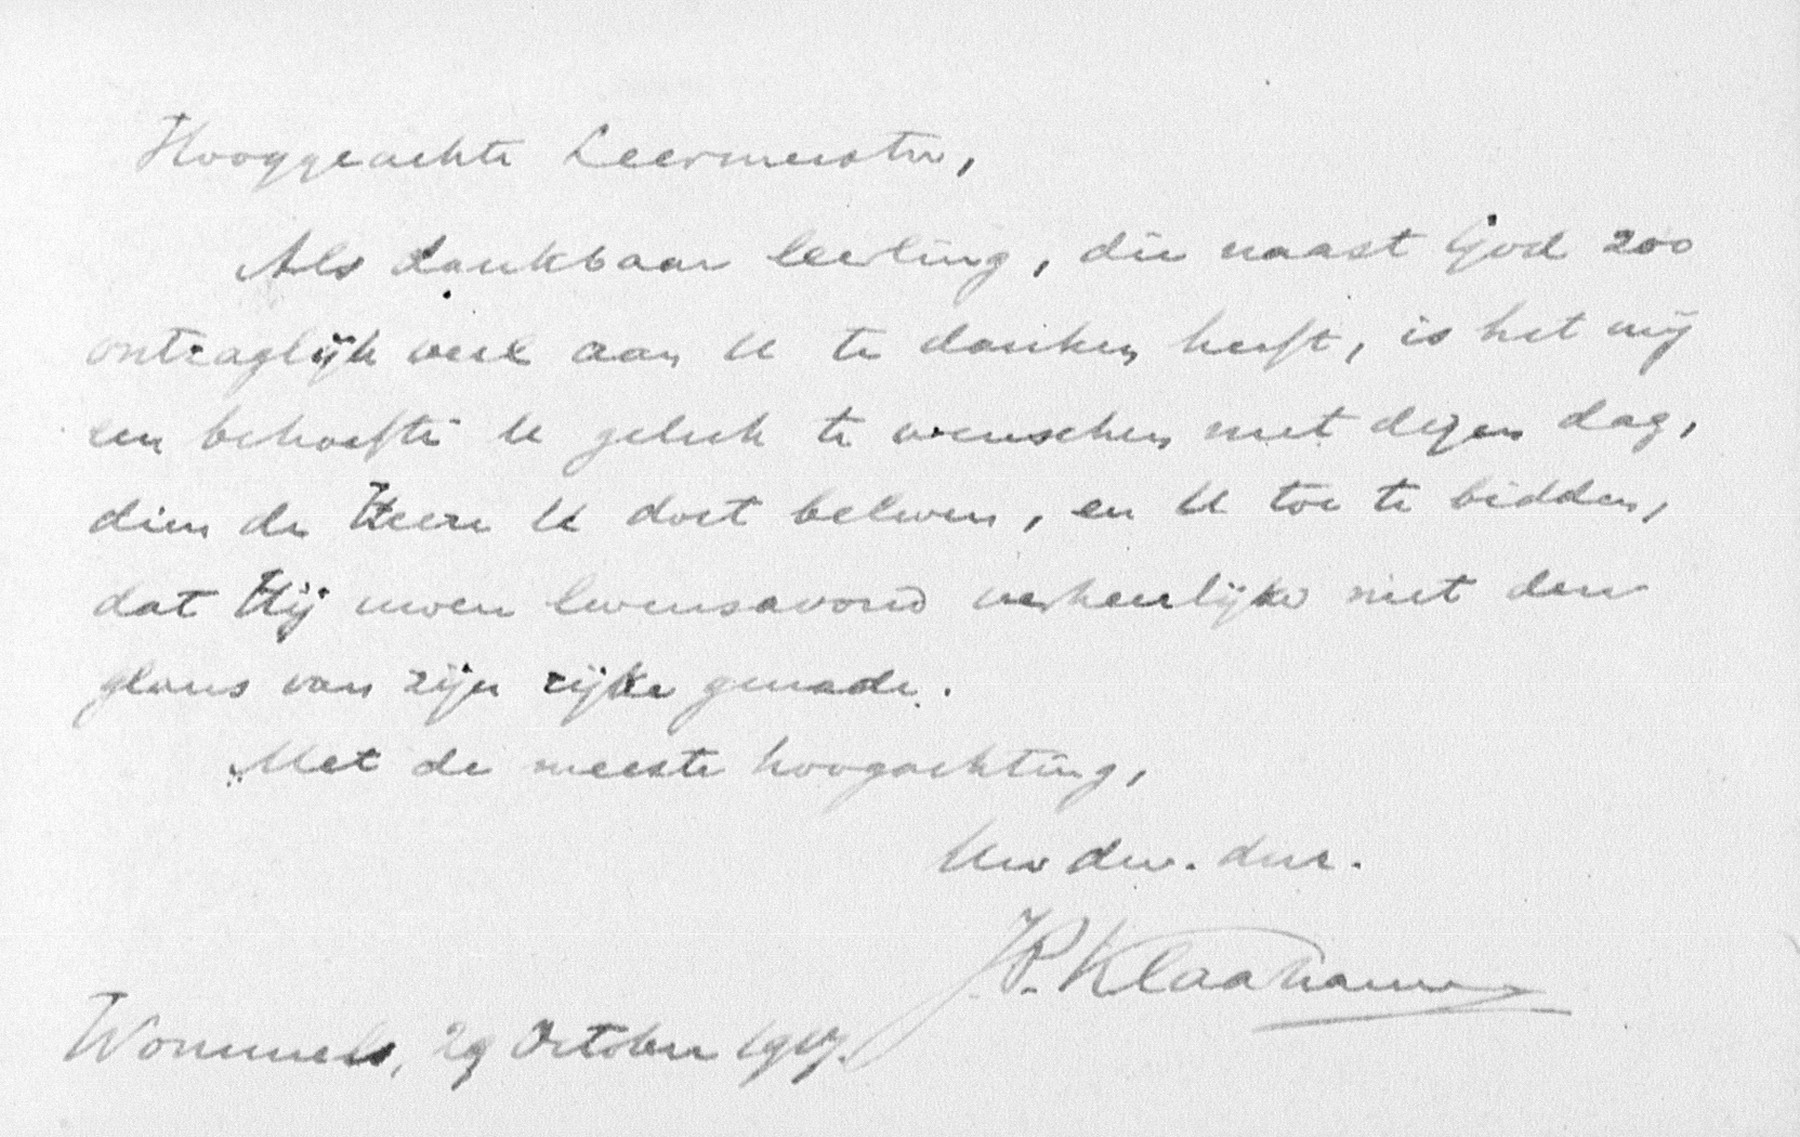 Hooggeachte Leermeester,
Als dankbaar leerling, die naast God zoo
ontzaglijk veel aan U te danken heeft, is het mij
een behoefte U geluk te wenschen met dezen dag,
dien de Heere U doet beleven, en U toe te bidden,
dat Hij uwen levensavond verheerlijke met den
glans van zijn rijke genade.
Met de meeste hoogachting,
Uw dw. dnr.
J.P. Klaarhamer
Wommels, 29 October 1917.